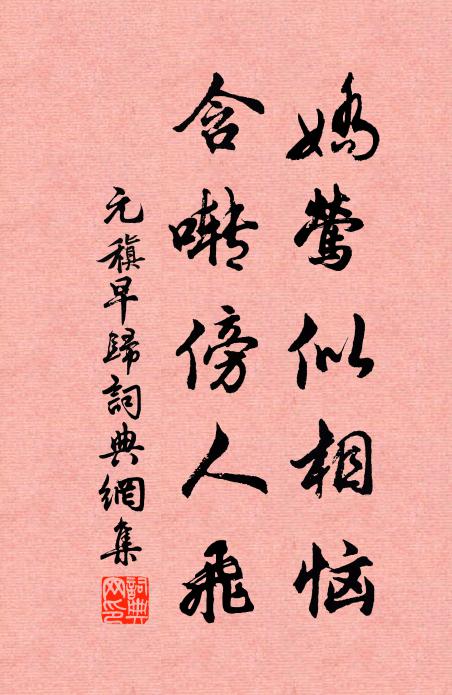 嬌鶯似相恼
含啭傍人飛
元稹早歸詞典網集
詞典网印